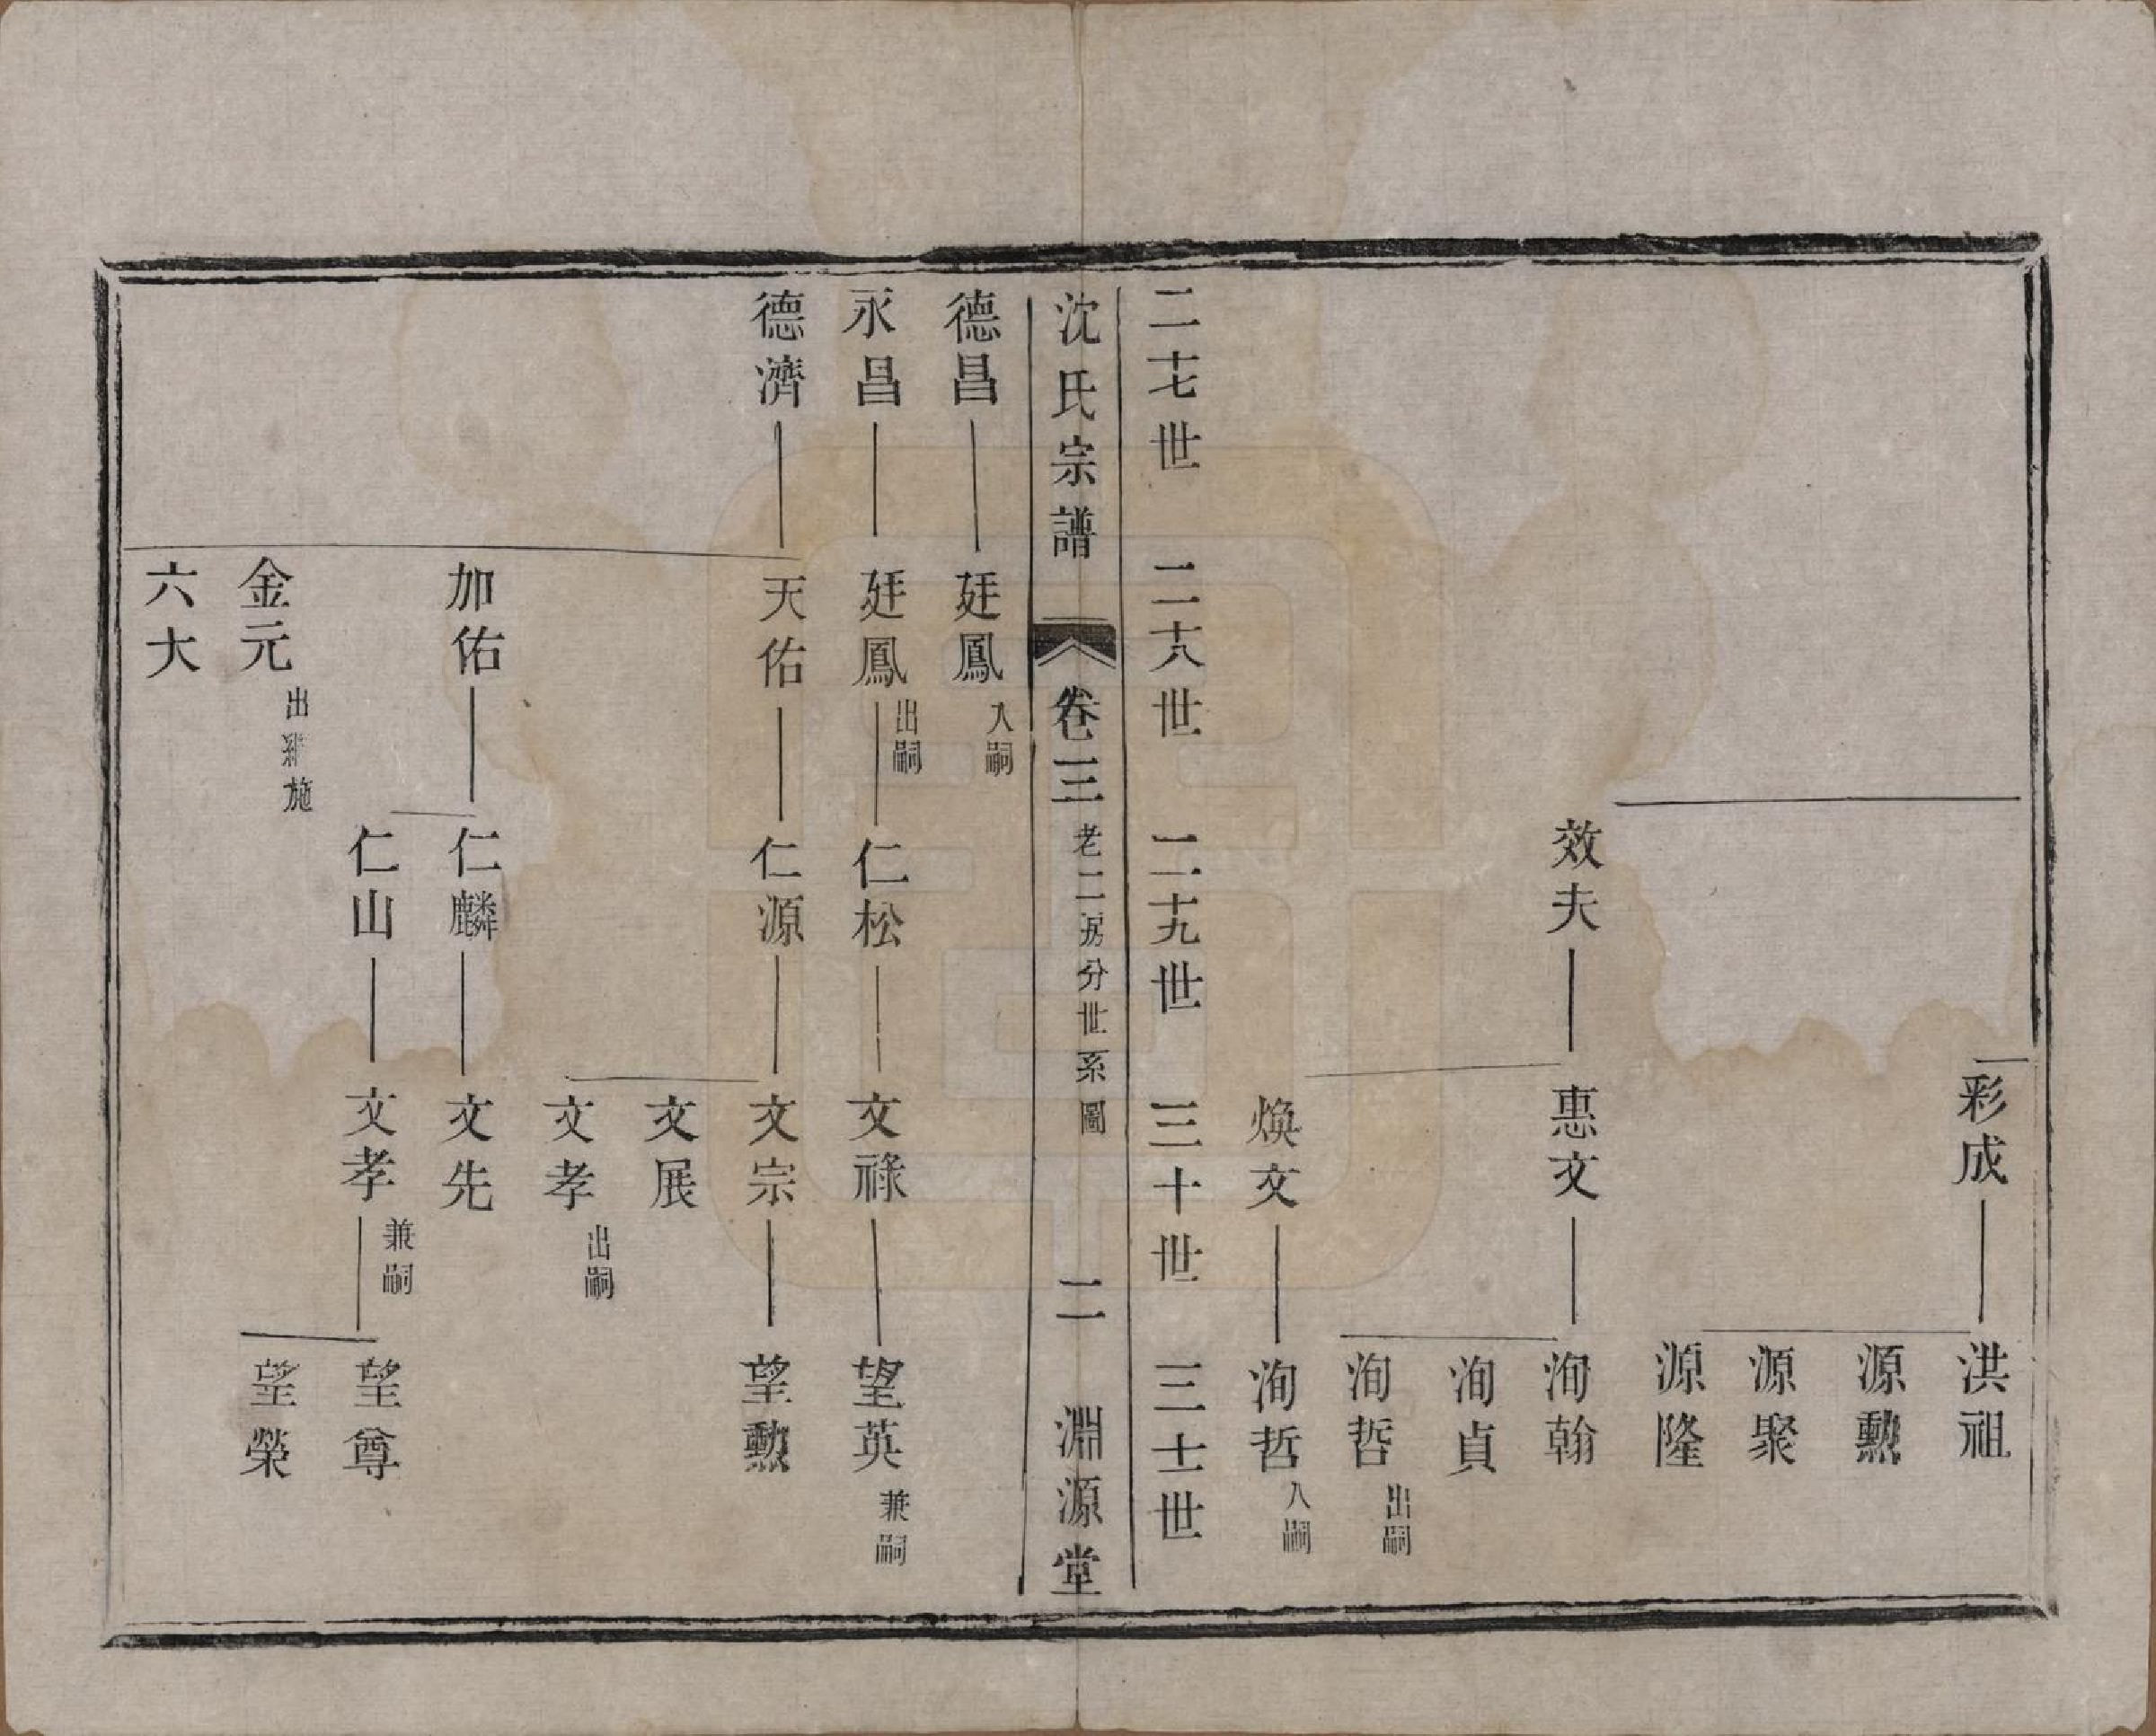 彩成
洪祖
源勲
源聚
源隆
效夫
惠文
洵翰
洵貞
洵哲 出嗣
煥文
洵哲 入嗣
二十七世
二十八世
二十九世
三十世
三十一世
沈氏宗譜 卷三 老二房分世系圖 二 淵源堂
德昌
廷鳳 入嗣
永昌
廷鳳 出嗣
仁松
文祿
望英 兼嗣
德濟
天佑
仁源
文宗
望勲
文展
文孝 出嗣
加佑
仁麟
文先
仁山
文孝 兼嗣
望尊
望榮
金元 出 施
六大